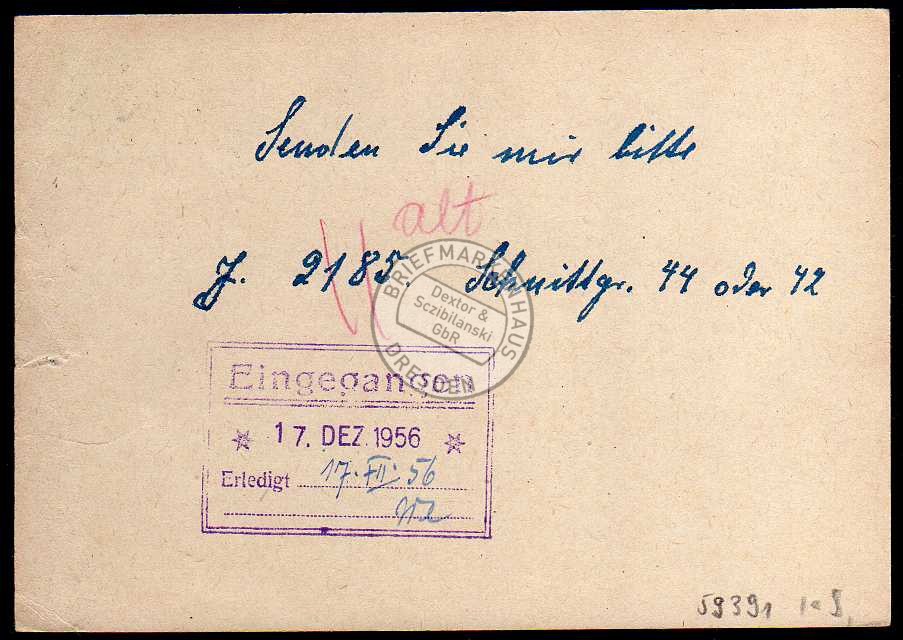 Senden Sie mir bitte
alt
J. 2185. Schnittgr. 44 oder 42
BRIEFMARKENHAUS
Dextor &
Sczibilanski
GbR
DRESDEN
Eingegangen
17. DEZ. 1956
Erledigt 17. XII. 56
59391